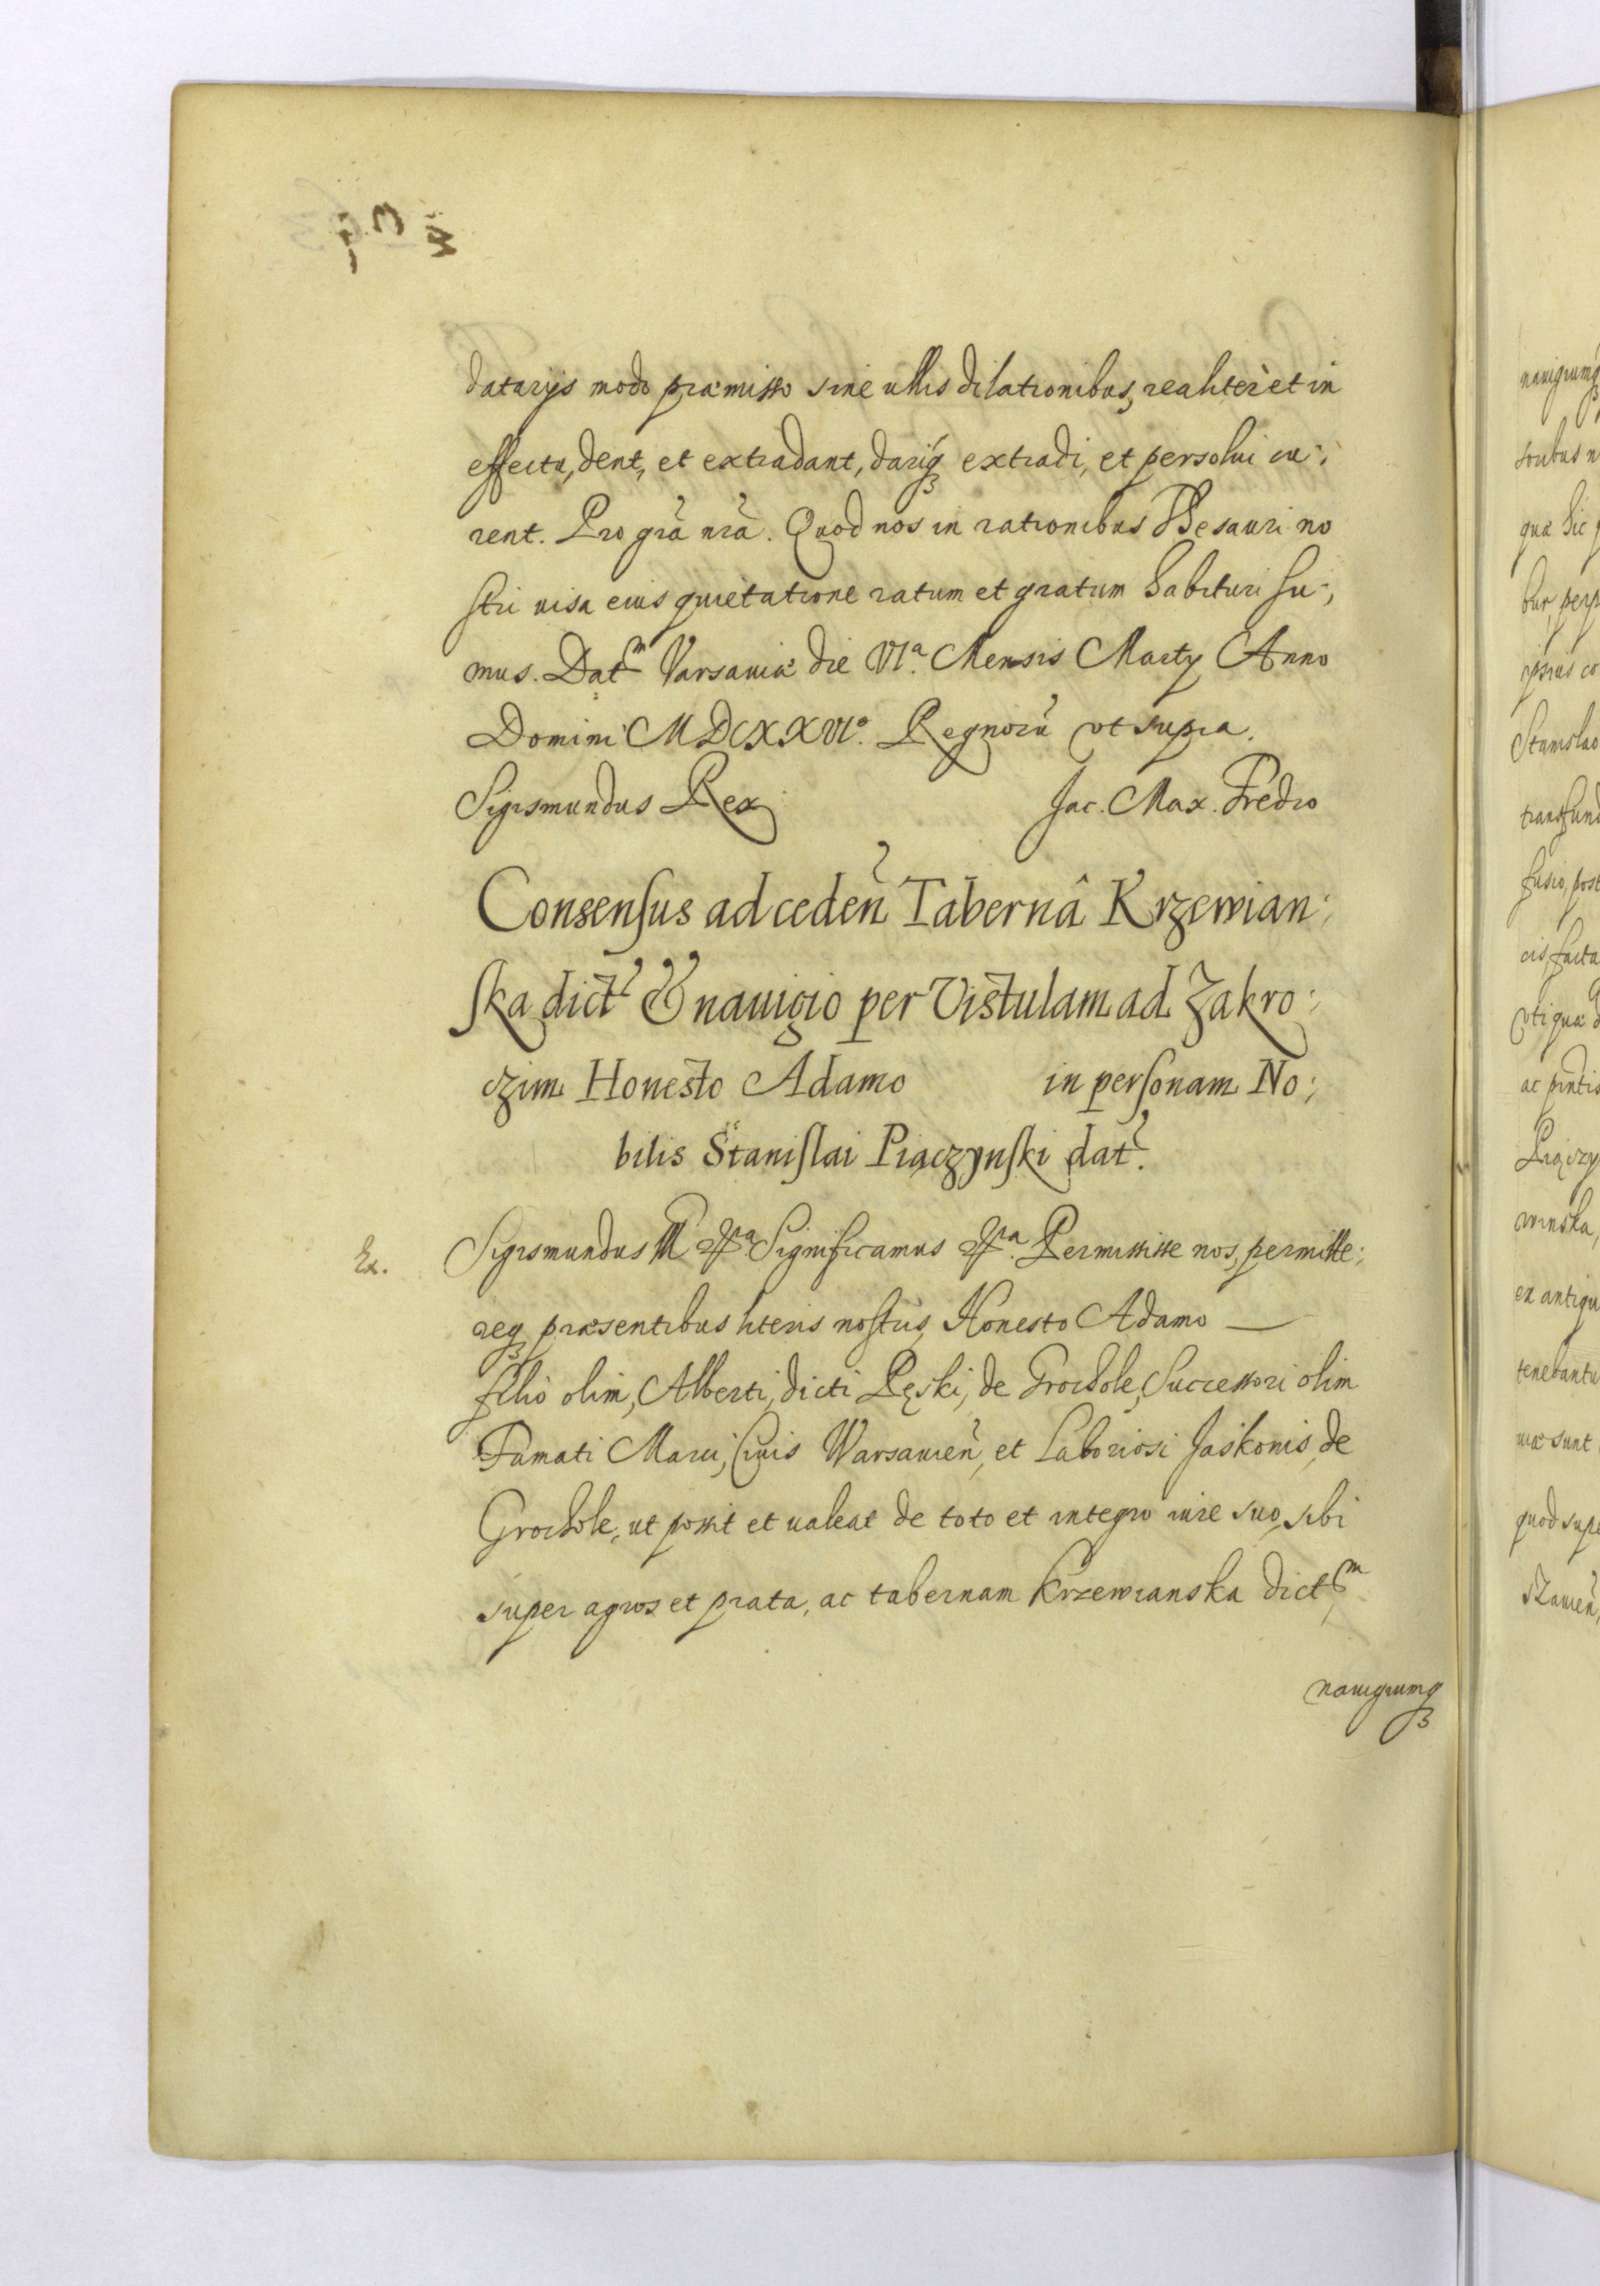 datarijs modo præmisso sine ullis dilationibus, realiter et in
effectu, dent, et extradant, dariq3 extradi, et persolui cu:,
rent. Pro grã nrã. Quod nos in rationibus Thesauri no
stri uisa eius quietatione ratum et gratum habituri su:,
mus. Dat^m Varsauiæ die VI^a. Mensis Martÿ Anno
Domini MDCXXVI^o. Regnorũ ut supra.
Sigismundus Rex Jac. Max. Fredro
Consensus ad ceden̄ Tabernâ Krzewian:
ska dict̃ & nauigio per Vistulam ad Zakro:
czim Honesto Adamo in personam No:
bilis Stanislai Piączynski dat̃.
Ex. Sigismundus III &^a Significamus &^a. Permisisse nos, permitte:
req3 præsentibus literis nostris, Honesto Adamo —
filio olim, Alberti, dicti Pęski, de Grochole, Successori olim
Famati Marci, Ciuis Warsauien̄, et Laboriosi Jaskonis, de
Grochole, ut possit et ualeat de toto et integro iure suo, sibi
super agros et prata, ac tabernam Krzewianska dict^m,
nauigiumq3
nauigiumq3
quæ hic
Stanislao
fusio, post
cis, facta
Vti quæ
winska,
ex antiqu
uiæ sunt
quod supe